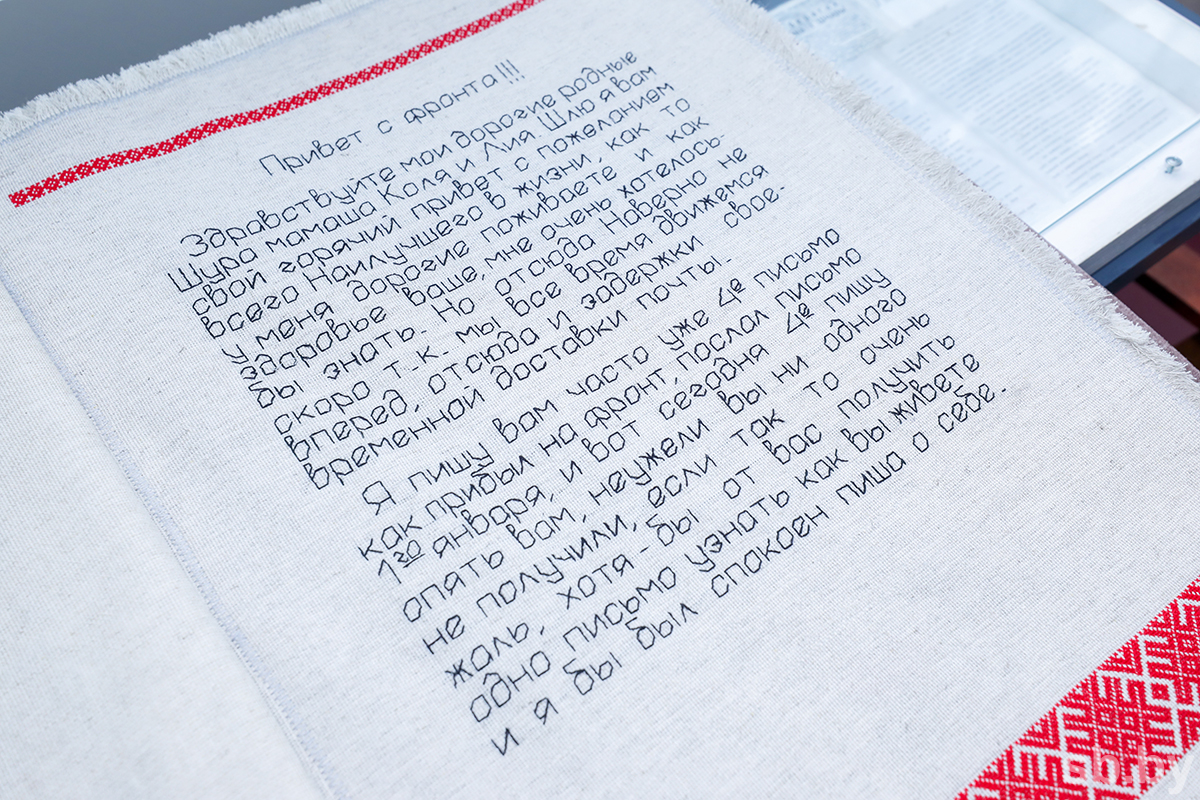 Привет с фронта!!!
Здравствуйте мои дорогие родные
Шура мамаша Коля и Лия. Шлю я вам
свой горячий привет с пожеланием
всего Наилучшего в жизни, как то
у меня дорогие поживаете и как
здоровье ваше, мне очень хотелось-
бы знать. Но отсюда Наверно не
скоро т.к. мы все время движемся
вперед, отсюда и задержки свое-
временной доставки почты.
Я пишу вам часто уже 4е письмо
как прибыл на фронт, послал письмо
1го января, и вот сегодня 4е пишу
опять вам, неужели вы ни одного
не получили, если так то очень
жаль, хотя-бы от вас получить
одно письмо узнать как вы живете
и я бы был спокоен пиша о себе.
sb.by